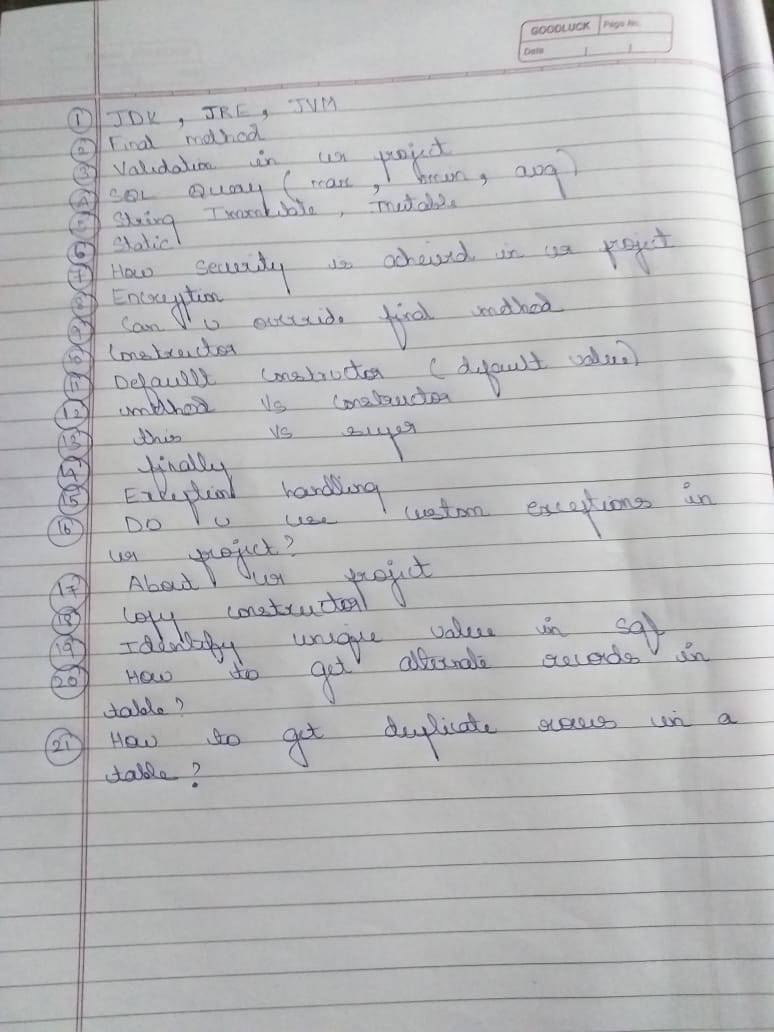 GOODLUCK Page No.
Date
① JDK, JRE, JVM
② Final method
③ Validation in ur project
④ SQL Query (max, min, avg)
⑤ String Immutable, mutable
⑥ Static
⑦ How security is acheived in ur project
⑧ Encryption
⑨ Can u override final method
⑩ Constructor
⑪ Default constructor (default value)
⑫ method Vs constructor
⑬ this Vs super
⑭ finally
⑮ Exception handling
⑯ Do u use custom exceptions in
ur project?
⑰ About ur project
⑱ Copy constructor
⑲ Identify unique value in sql
⑳ How to get alternate records in
table?
㉑ How to get duplicate rows in a
table?